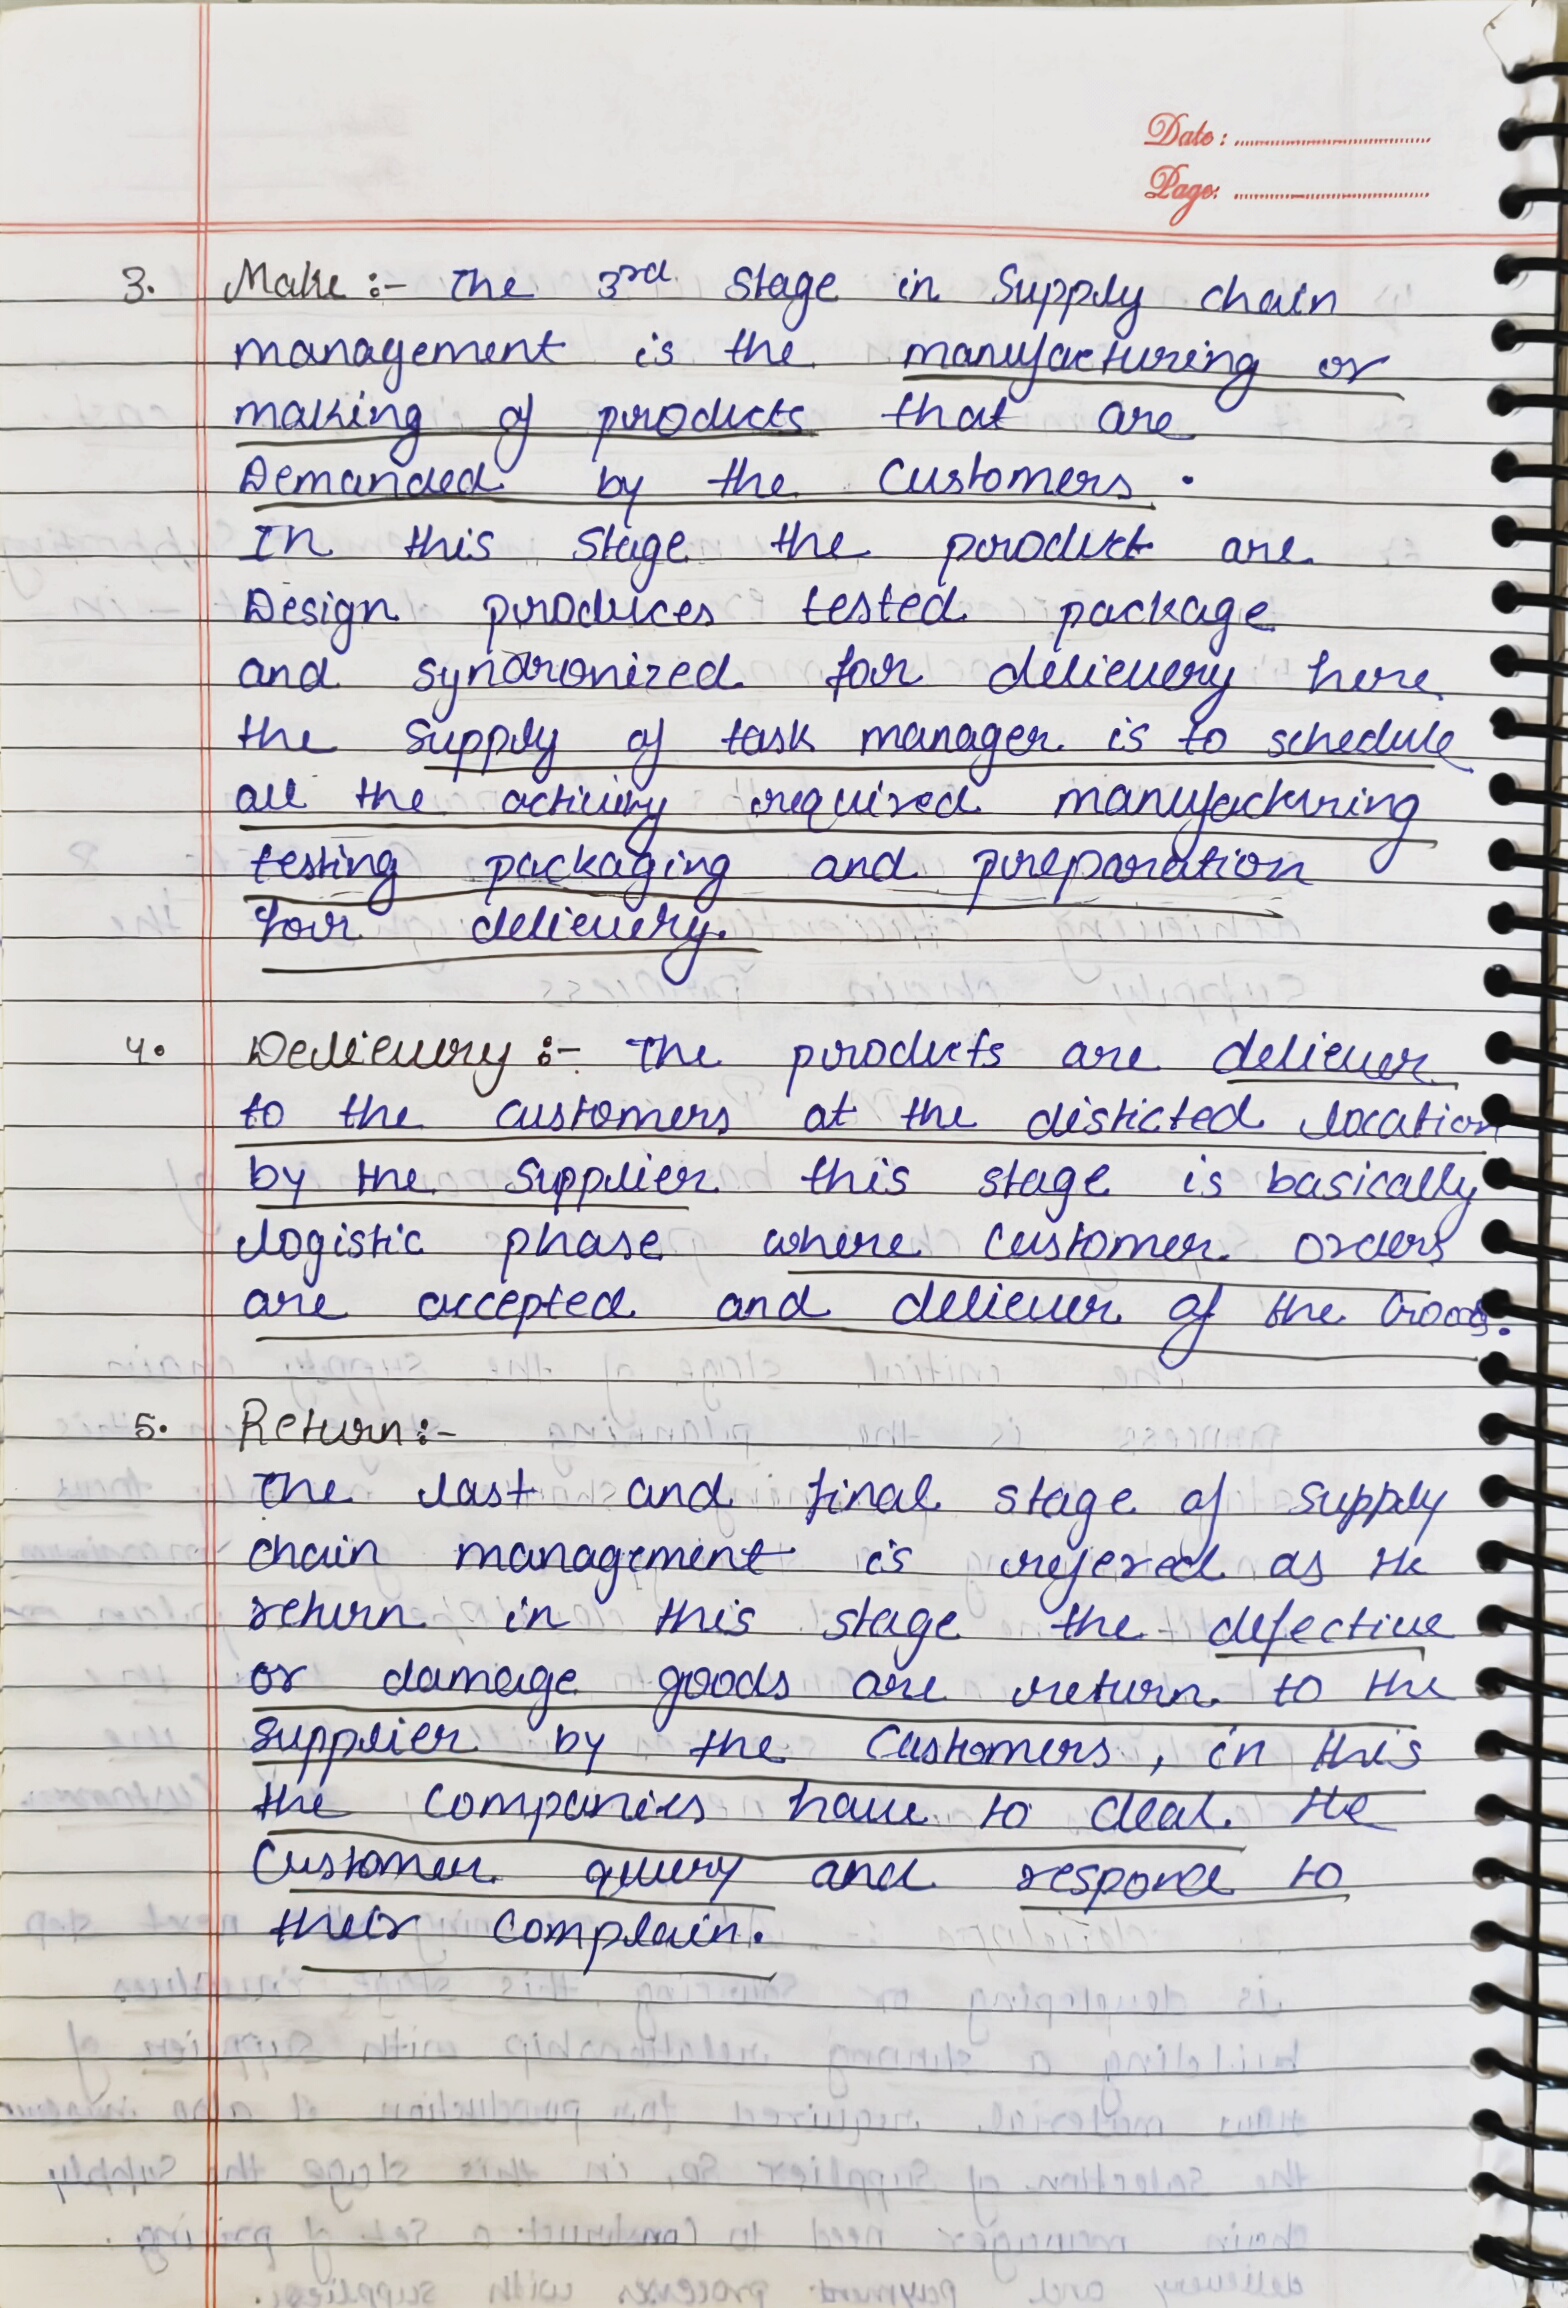 Date :
Page:
3. Make :- The 3rd Stage in Supply chain
management is the manufacturing or
making of products that are
Demanded by the Customers .
In this stage the product are
Design produces tested package
and syndronized for delievery here
the supply of task manager is to schedule
all the activity required manufacturing
testing packaging and preparation
for delievery.
4. Delievery :- The products are deliever
to the customers at the disticted location
by the supplier this stage is basically
logistic phase where customer orders
are accepted and deliever of the Goods.
5. Return :-
The last and final stage of supply
chain management is refered as the
return in this stage the defective
or damage goods are return to the
supplier by the Customers , in this
the companies have to deal the
Customer query and respond to
their Complain.